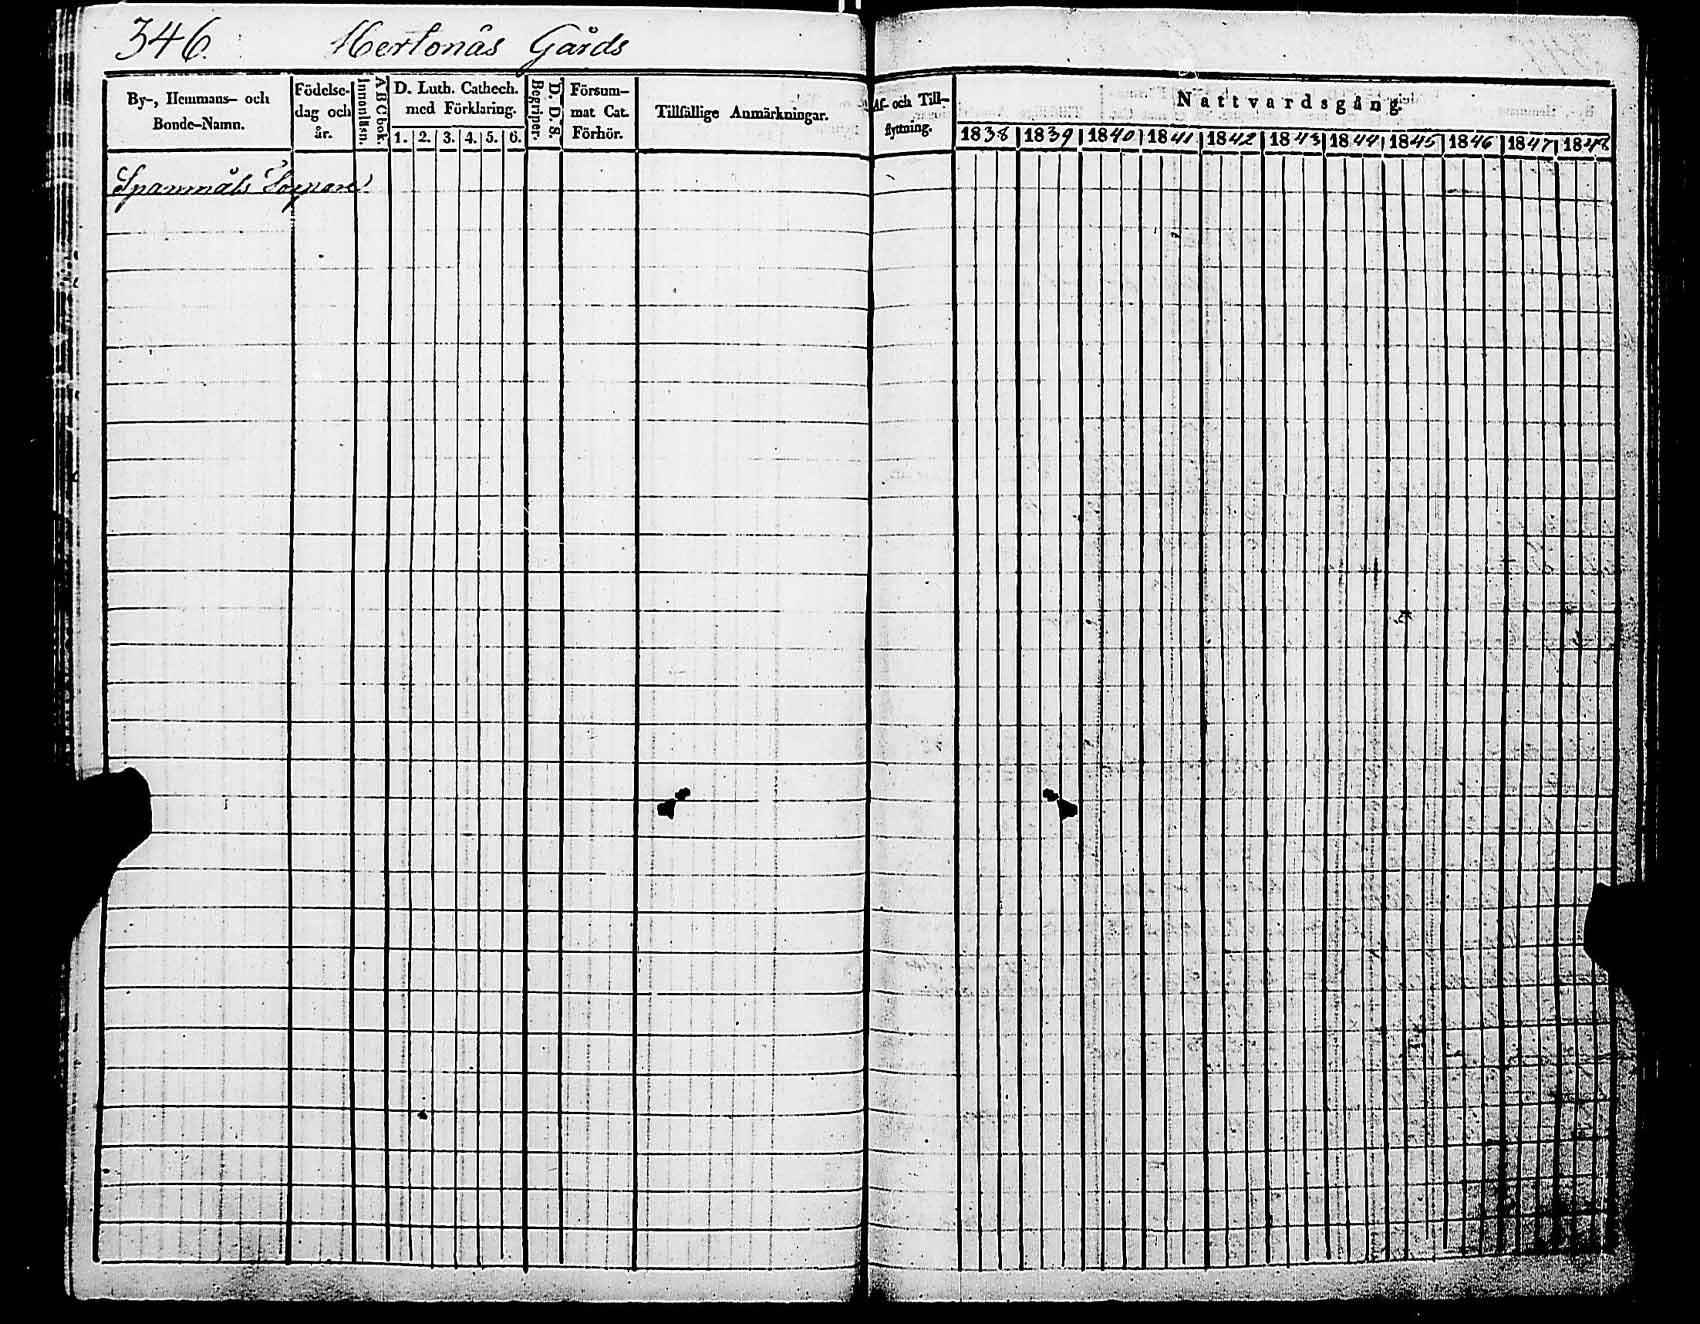 346. Hertonäs Gårds
By-, Hemmans- och
Bonde-Namn.
Födelse-
dag och
år.
ABC bok.
Innanläsn.
D. Luth. Cathech.
med Förklaring.
1. 2. 3. 4. 5. 6.
D. D. S.
Begriper.
Försum-
mat Cat.
Förhör.
Tillfällige Anmärkningar.
Af- och Till-
flyttning.
Nattvardsgång
1838 1839 1840 1841 1842 1843 1844 1845 1846 1847 1848
Spanmåls Torpare